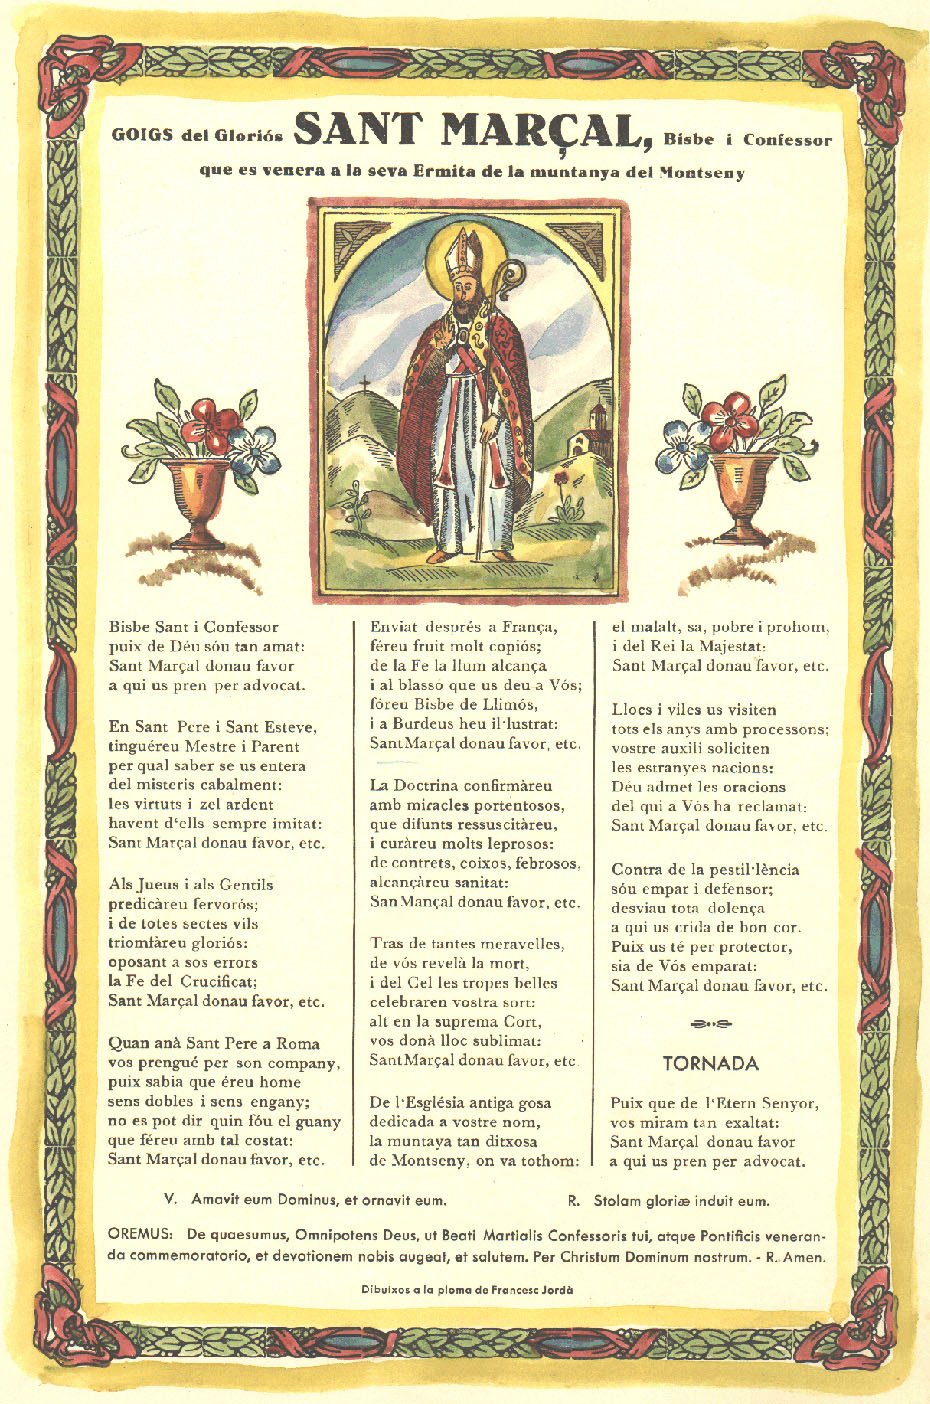 GOIGS del Gloriós SANT MARÇAL, Bisbe i Confessor
que es venera a la seva Ermita de la muntanya del Montseny
Bisbe Sant i Confessor
puix de Déu sóu tan amat:
Sant Marçal donau favor
a qui us pren per advocat.
En Sant Pere i Sant Esteve,
tinguéreu Mestre i Parent
per qual saber se us entera
del misteris cabalment:
les virtuts i zel ardent
havent d'ells sempre imitat:
Sant Marçal donau favor, etc.
Als Jueus i als Gentils
predicàreu fervorós;
i de totes sectes vils
triomfàreu gloriós:
oposant a sos errors
la Fe del Crucificat;
Sant Marçal donau favor, etc.
Quan anà Sant Pere a Roma
vos prengué per son company,
puix sabia que éreu home
sens dobles i sens engany;
no es pot dir quin fóu el guany
que féreu amb tal costat:
Sant Marçal donau favor, etc.
Enviat després a França,
féreu fruit molt copiós;
de la Fe la llum alcança
i al blassó que us deu a Vós;
fóreu Bisbe de Llimós,
i a Burdeus heu il·lustrat:
Sant Marçal donau favor, etc.
La Doctrina confirmàreu
amb miracles portentosos,
que difunts ressuscitàreu,
i curàreu molts leprosos:
de contrets, coixos, febrosos,
alcançàreu sanitat:
San Mançal donau favor, etc.
Tras de tantes meravelles,
de vós revelà la mort,
i del Cel les tropes belles
celebraren vostra sort:
alt en la suprema Cort,
vos donà lloc sublimat:
Sant Marçal donau favor, etc.
De l'Església antiga gosa
dedicada a vostre nom,
la muntaya tan ditxosa
de Montseny, on va tothom:
el malalt, sa, pobre i prohom,
i del Rei la Majestat:
Sant Marçal donau favor, etc.
Llocs i viles us visiten
tots els anys amb processons;
vostre auxili soliciten
les estranyes nacions:
Déu admet les oracions
del qui a Vós ha reclamat:
Sant Marçal donau favor, etc.
Contra de la pestil·lència
sóu empar i defensor;
desviau tota dolença
a qui us crida de bon cor.
Puix us té per protector,
sia de Vós emparat:
Sant Marçal donau favor, etc.
TORNADA
Puix que de l'Etern Senyor,
vos miram tan exaltat:
Sant Marçal donau favor
a qui us pren per advocat.
V. Amavit eum Dominus, et ornavit eum. R. Stolam gloriæ induit eum.
OREMUS: De quaesumus, Omnipotens Deus, ut Beati Martialis Confessoris tui, atque Pontificis veneran-
da commemoratorio, et devotionem nobis augeat, et salutem. Per Christum Dominum nostrum. - R. Amen.
Dibuixos a la ploma de Francesc Jordà